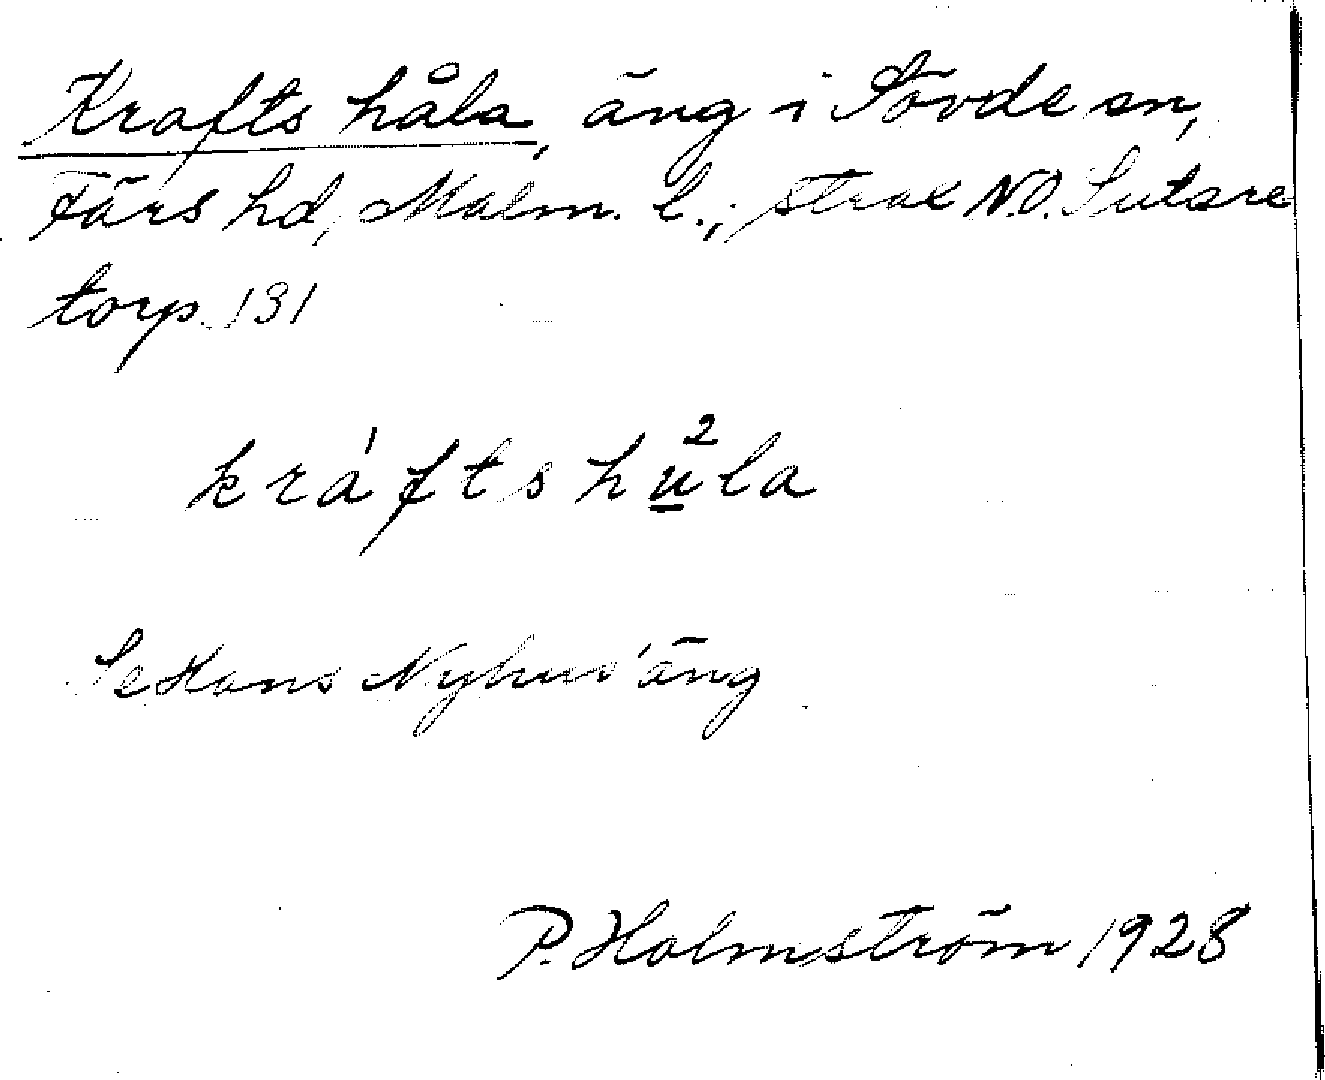 Krafts håla, äng i Sövde sn,
Färs hd, Malm. l.; strax N.O. Sutare
torp. 131
kráftshu̲²la
Se Hans Nyhus' äng
P. Holmström 1928